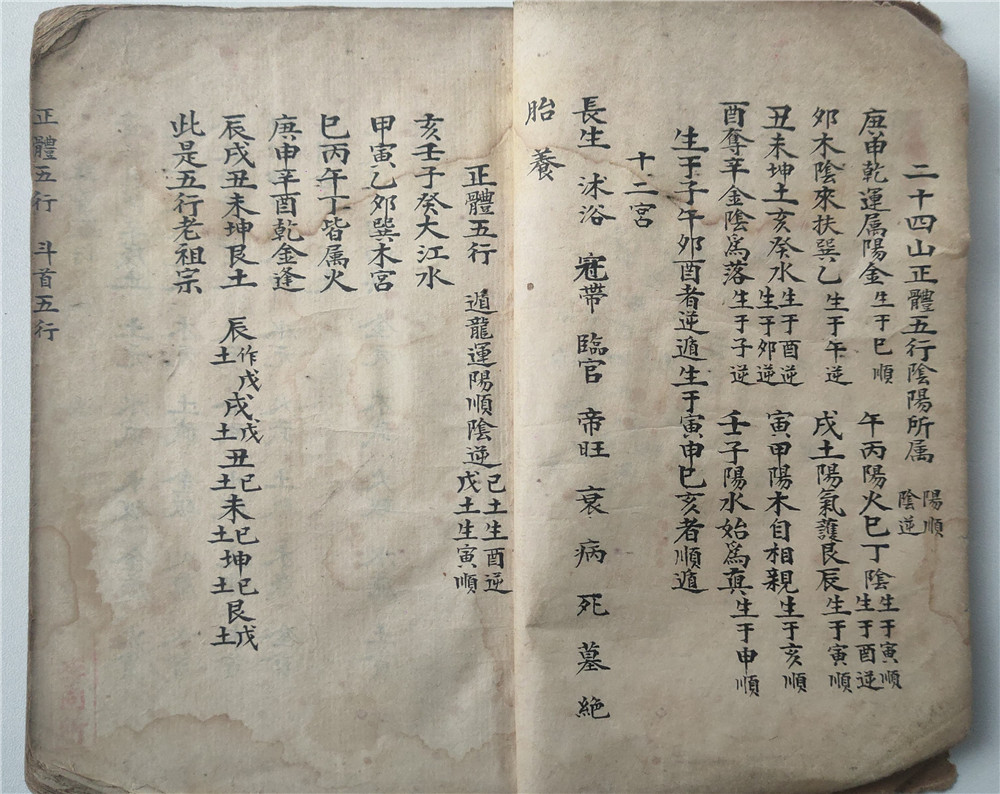 二十四山正體五行陰陽所属 陽順陰逆
庚申乾運属陽金 生于巳順 午丙陽火巳丁陰 生于寅順生于酉逆
卯木陰來扶巽乙 生于午逆 戌土陽氣護艮辰 生于寅順
丑未坤土亥癸水 生于酉逆生于卯逆 寅甲陽木自相親 生于亥順
酉奪辛金陰爲落 生于子逆 壬子陽水始爲真 生于申順
生于子午卯酉者逆遁生于寅申巳亥者順遁
十二宮
長生 沐浴 冠帶 臨官 帝旺 衰 病 死 墓 絶
胎 養
正體五行 遁龍運陽順陰逆 己土生酉逆戊土生寅順
亥壬子癸大江水
甲寅乙卯巽木宮
巳丙午丁皆属火
庚申辛酉乾金逢
辰戌丑未坤艮土 辰土作戊戌土戊丑土己未土己坤土己艮土戊
此是五行老祖宗
正體五行 斗首五行